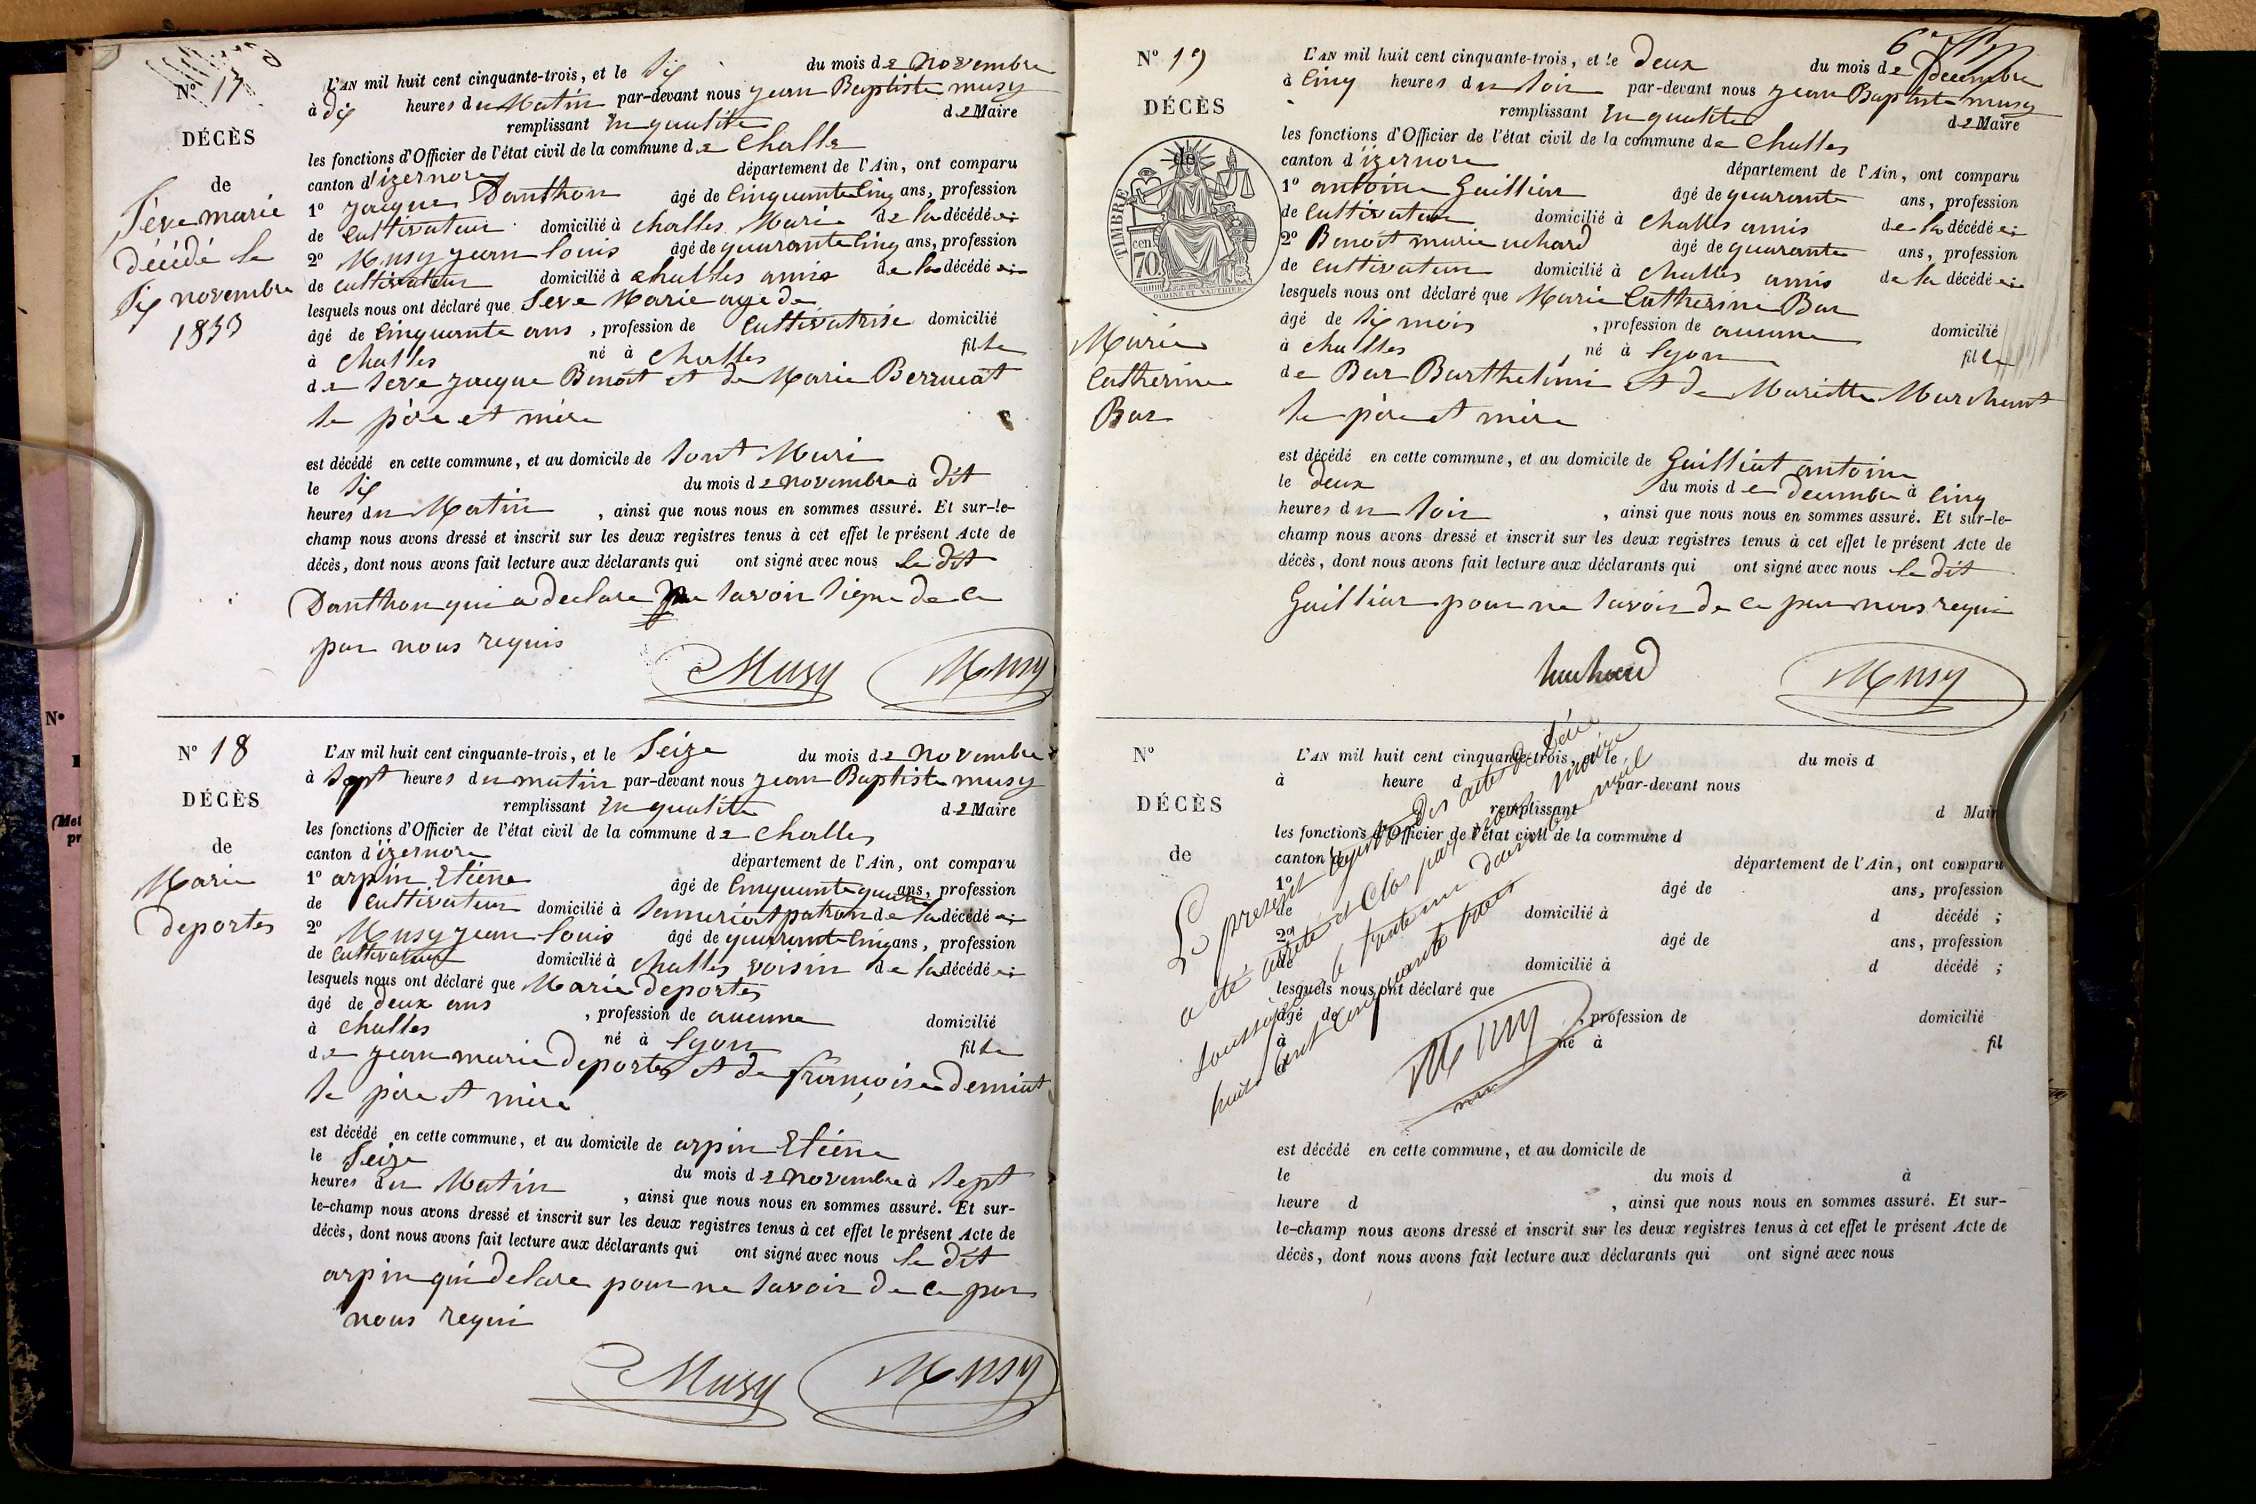 N° 17
DÉCÈS
de
Sève marie
décédé le
Six novembre
1853
L'AN mil huit cent cinquante-trois, et le Six du mois de Novembre
à dix heures du Matin par-devant nous jean Baptiste musy
remplissant En qualité de Maire
les fonctions d'Officier de l'état civil de la commune de Challes
canton d'izernore département de l'Ain, ont comparu
1° jacque Danthon âgé de Cinquante Cinq ans, profession
de Cultivateur domicilié à challes Mari de la décédé ei
2° Musy jean Louis âgé de quarante Cinq ans, profession
de cultivateur domicilié à challes amis de la décédé ei
lesquels nous ont déclaré que Seve Marie age de
âgé de Cinquante ans, profession de Cultivatrise domicilié
à Challes né à Challes fille
de Seve jacque Benoit et de Marie Berrucat
Se père et mère
est décédé en cette commune, et au domicile de Sont Mari
le Six du mois de novembre à Dit
heures du Matin, ainsi que nous nous en sommes assuré. Et sur-le-
champ nous avons dressé et inscrit sur les deux registres tenus à cet effet le présent Acte de
décès, dont nous avons fait lecture aux déclarants qui ont signé avec nous Le Dit
Danthon qui a declare ne Savoir Signe de ce
par nous requis
Musy Musy
N° 18
DÉCÈS
de
Marie
deportes
L'AN mil huit cent cinquante-trois, et le Seize du mois de Novembre
à Sept heures du matin par-devant nous jean Baptiste musy
remplissant En qualité de Maire
les fonctions d'Officier de l'état civil de la commune de Challes
canton d'izernore département de l'Ain, ont comparu
1° arpin Etiene âgé de Cinquante quatre ans, profession
de Cultivateur domicilié à Samériat patron de la décédé ei
2° Musy jean Louis âgé de quarante Cinq ans, profession
de Cultivateur domicilié à challes voisin de la décédé ei
lesquels nous ont déclaré que Marie deportes
âgé de deux ans, profession de aucunne domicilié
à Challes né à Lyon fille
de jean marie deportes et de françoise demiat
Se père et mère
est décédé en cette commune, et au domicile de arpin Etiene
le Seize du mois de novembre à Sept
heures du Matin, ainsi que nous nous en sommes assuré. Et sur-
le-champ nous avons dressé et inscrit sur les deux registres tenus à cet effet le présent Acte de
décès, dont nous avons fait lecture aux déclarants qui ont signé avec nous le Dit
arpin qui delare pour ne Savoir De ce par
nous requi
Musy Musy
6e
N° 19
DÉCÈS
de
TIMBRE
cen
70
Marie
Catherine
Bar
L'AN mil huit cent cinquante-trois, et le deux du mois de Décembre
à Cinq heures du Soir par-devant nous jean Baptiste musy
remplissant En qualité de Maire
les fonctions d'Officier de l'état civil de la commune de Challes
canton d'izernore département de l'Ain, ont comparu
1° antoine Gailliar âgé de quarante ans, profession
de Cultivateur domicilié à Challes amis de la décédé ei
2° Benoit marie uchard âgé de quarante ans, profession
de Cultivateur domicilié à Challes amis de la décédé ei
lesquels nous ont déclaré que Marie Catherine Bar
âgé de Six mois, profession de aucunne domicilié
à challes né à Lyon fille
de Bar Barthelimi et de Mariette Marchant
Se père et mère
est décédé en cette commune, et au domicile de Gailliat antoine
le deux du mois de Decembre à Cinq
heures du Soir, ainsi que nous nous en sommes assuré. Et sur-le-
champ nous avons dressé et inscrit sur les deux registres tenus à cet effet le présent Acte de
décès, dont nous avons fait lecture aux déclarants qui ont signé avec nous le Dit
Gailliar pour ne Savoir de ce par nous requi
Musy
N°
DÉCÈS
de
L'AN mil huit cent cinquante-trois, et le du mois d
à heure d par-devant nous
remplissant d Maire
les fonctions d'Officier de l'état civil de la commune d
canton d département de l'Ain, ont comparu
1° âgé de ans, profession
de domicilié à d décédé ;
2° âgé de ans, profession
de domicilié à d décédé ;
lesquels nous ont déclaré que
âgé de, profession de domicilié
à né à fil
Le present Registre Des actes de Décè
a été arrêté et Clos par nous maire
Soussigné le trente un decembre mil
huit Cent Cinquante trois
Musy
est décédé en cette commune, et au domicile de
le du mois d à
heure d, ainsi que nous nous en sommes assuré. Et sur-
le-champ nous avons dressé et inscrit sur les deux registres tenus à cet effet le présent Acte de
décès, dont nous avons fait lecture aux déclarants qui ont signé avec nous